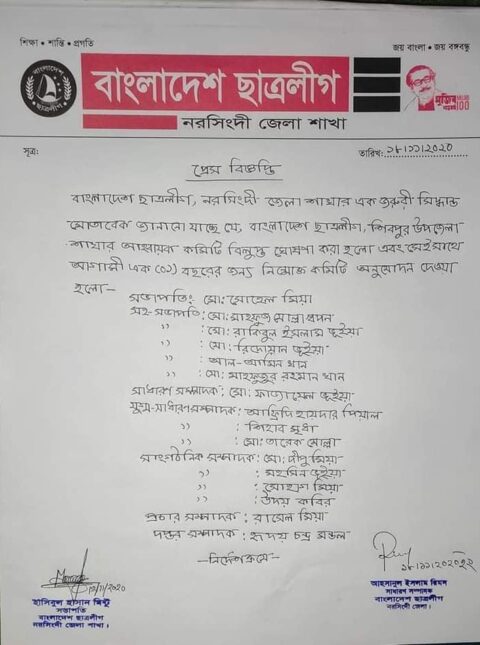 শিক্ষা • শান্তি • প্রগতি
জয় বাংলা • জয় বঙ্গবন্ধু
বাংলাদেশ ছাত্রলীগ
বাংলাদেশ ছাত্রলীগ
মুজিব 100
নরসিংদী জেলা শাখা
সূত্র:
তারিখ: ১৮/১১/২০২০
প্রেস বিজ্ঞপ্তি
বাংলাদেশ ছাত্রলীগ, নরসিংদী জেলা শাখার এক জরুরী সিদ্ধান্ত
মোতাবেক জানানো যাচ্ছে যে, বাংলাদেশ ছাত্রলীগ, শিবপুর উপজেলা
শাখার আহ্বায়ক কমিটি বিলুপ্ত ঘোষণা করা হলো এবং সেই সাথে
আগামী এক (০১) বছরের জন্য নিম্নোক্ত কমিটি অনুমোদন দেওয়া
হলো-
সভাপতি: মো: সোহেল মিয়া
সহ-সভাপতি: মো: মাহফুজ মোল্লা
" : মো: রাকিবুল ইসলাম ভূঁইয়া
" : মো: রিদোয়ান ভূঁইয়া
" : আল-আমিন খান
" : মো: মাহফুজুর রহমান খান
সাধারণ সম্পাদক: মো: ভূঁইয়া
যুগ্ম-সাধারণ সম্পাদক: আফ্রিদি হায়দার পিয়াল
" : শিহাব মৃধা
" : মো: তারেক মোল্লা
সাংগঠনিক সম্পাদক: মো: দীপু মিয়া
" : মহসিন ভূঁইয়া
" : সোহাগ মিয়া
" : উদয় কবির
প্রচার সম্পাদক: রাসেল মিয়া
দপ্তর সম্পাদক: হৃদয় চন্দ্র মন্ডল
-নির্দেশক্রমে-
১৮/১১/২০২০
হাসিবুল হাসান মিন্টু
সভাপতি
বাংলাদেশ ছাত্রলীগ
নরসিংদী জেলা শাখা।
আহসানুল ইসলাম রিমন
সাধারণ সম্পাদক
বাংলাদেশ ছাত্রলীগ
নরসিংদী জেলা।